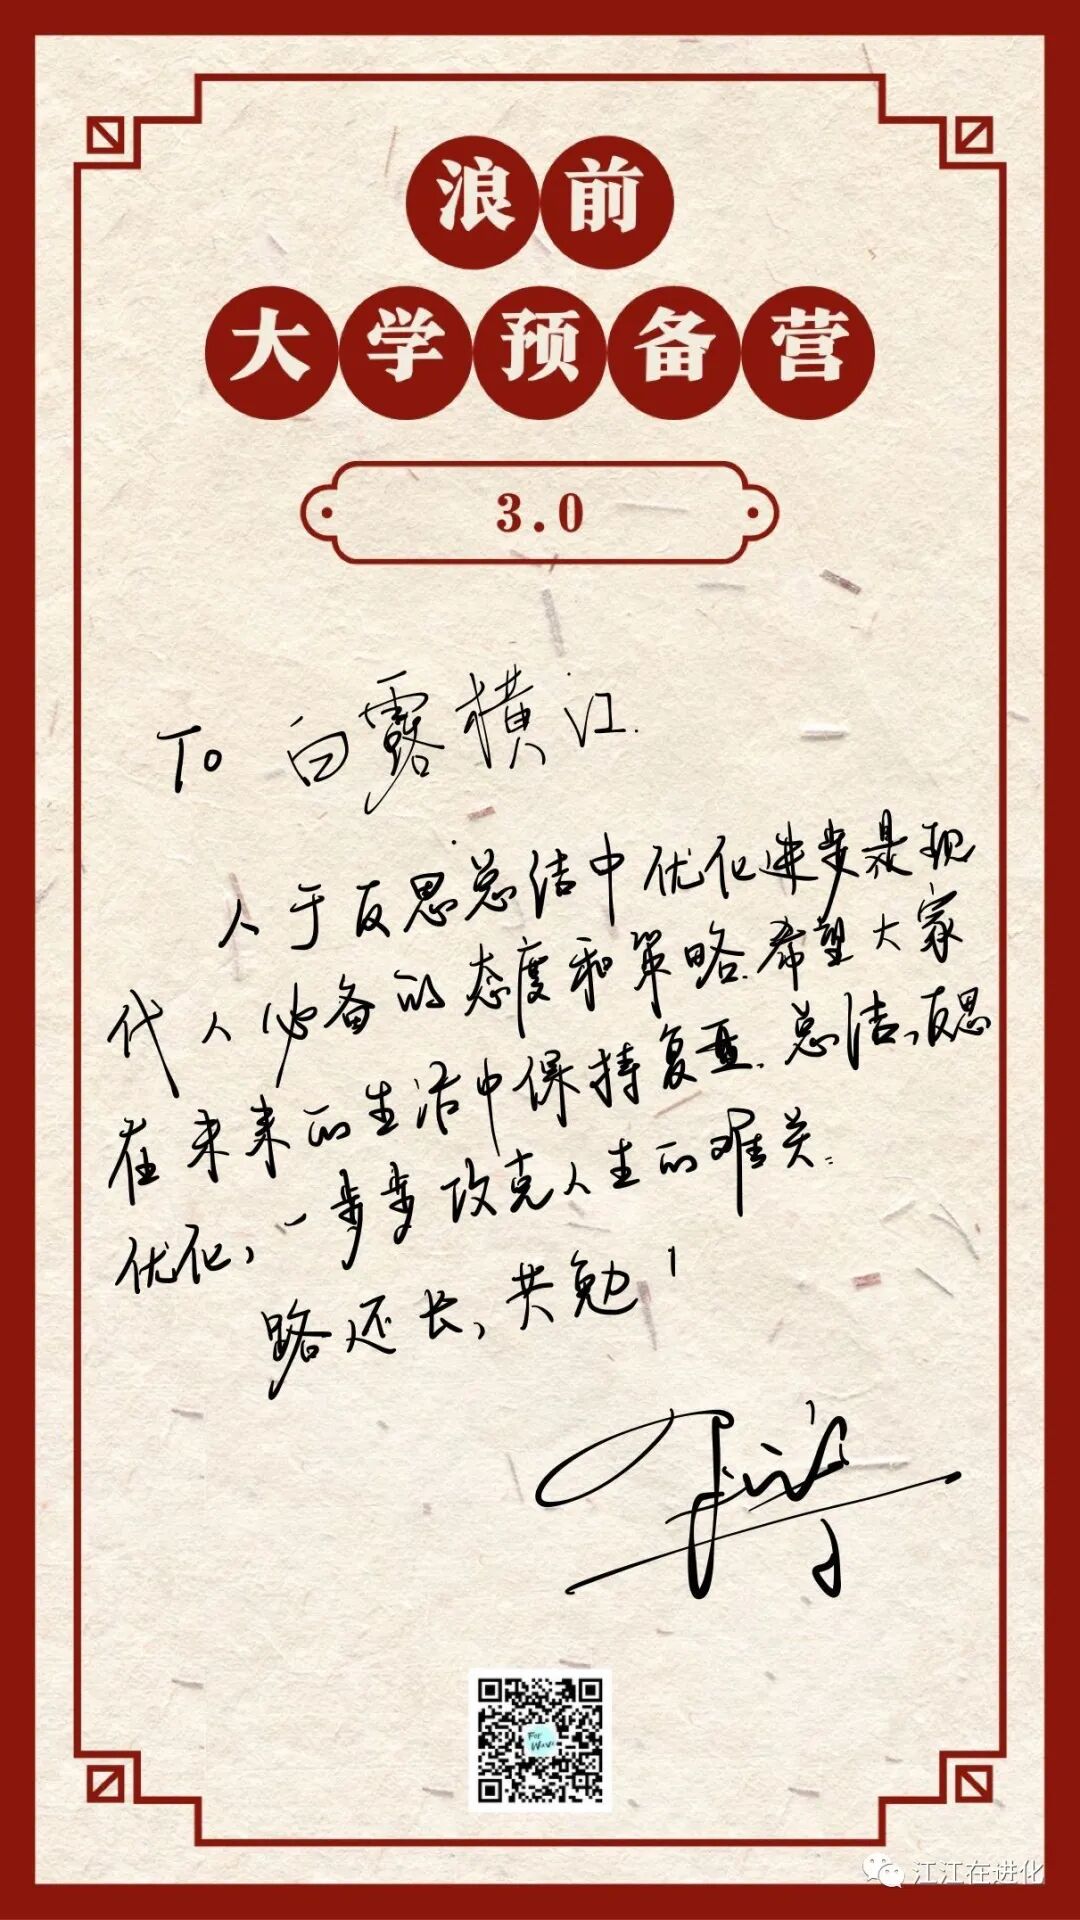 浪前
大学预备营
3.0
To 白露横江.
人于反思总结中优化进步是现
代人必备的态度和策略.希望大家
在未来的生活中保持复盘.总结、反思
优化,一步步攻克人生的难关.
路还长,共勉!
For
Wave
江江在进化